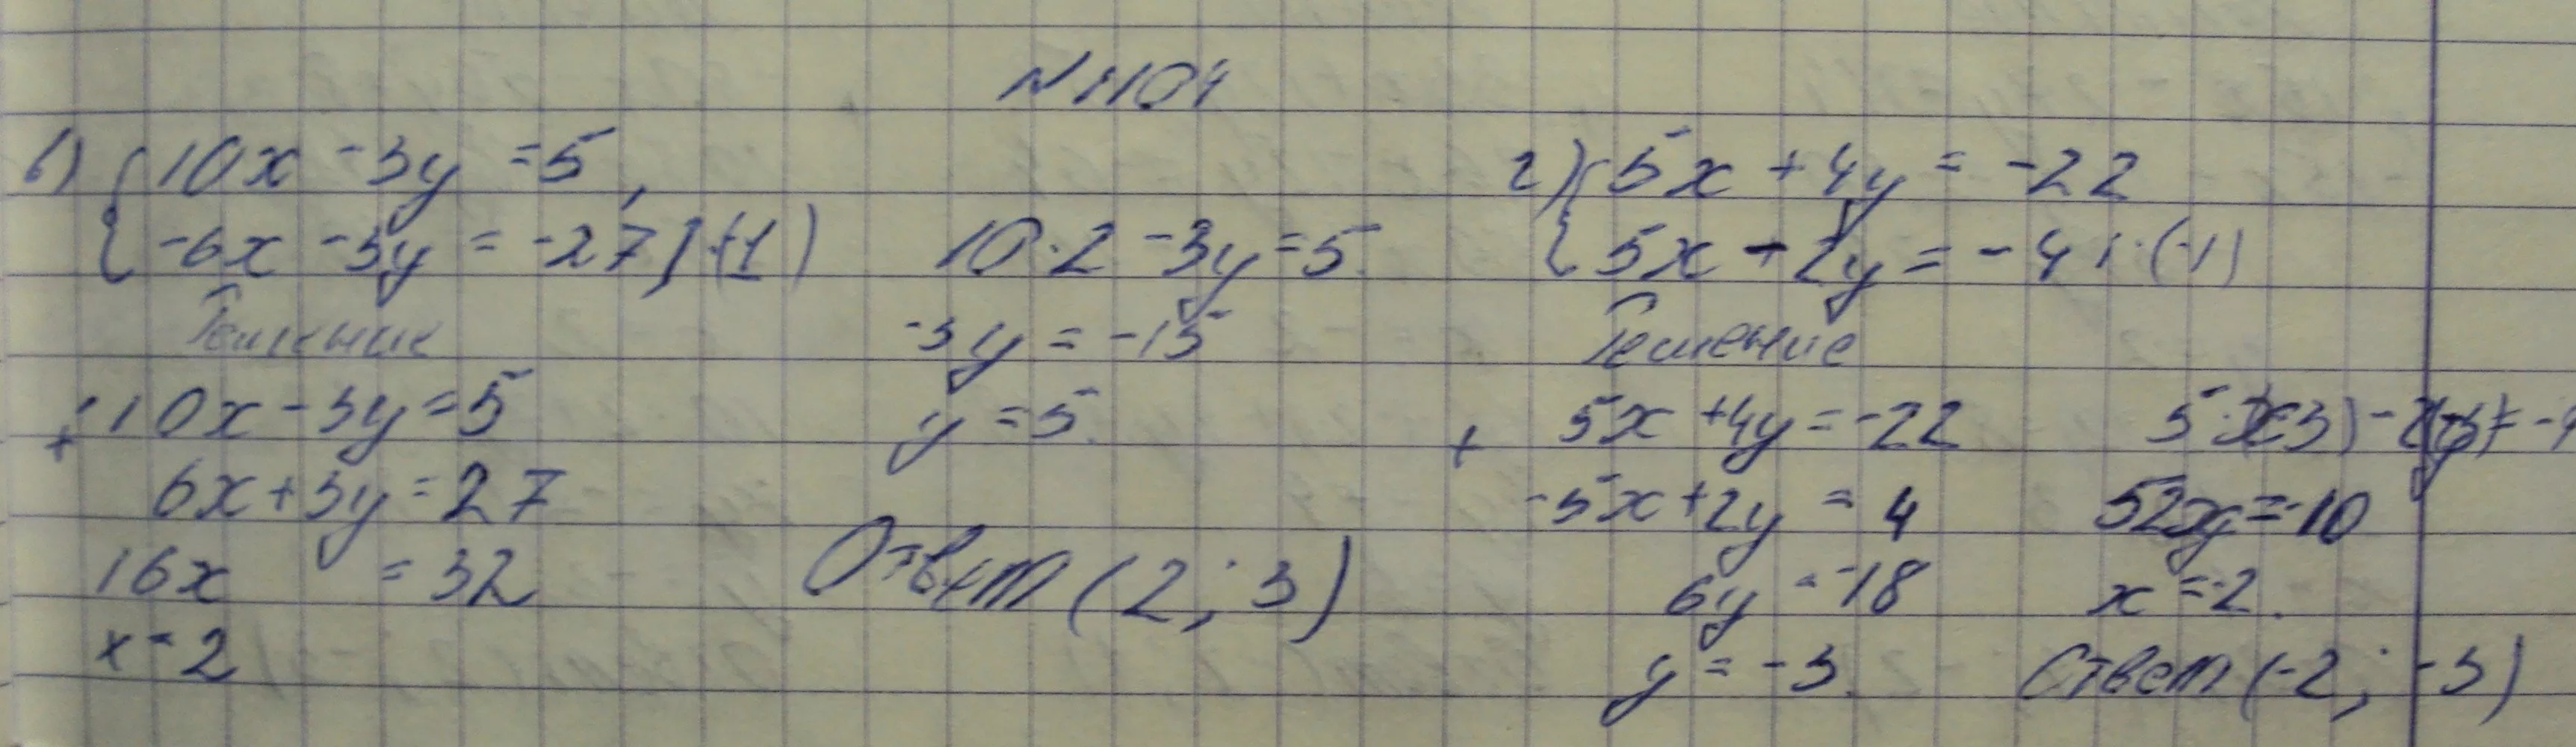 N 1104
в) { 10x - 3y = 5,
-6x - 3y = -27 | · (-1)
Решение
+ 10x - 3y = 5
6x + 3y = 27
16x = 32
x = 2
10 · 2 - 3y = 5
-3y = -15
y = 5.
Ответ (2; 3)
г) { 5x + 4y = -22
5x - 2y = -4 | · (-1)
Решение
+ 5x + 4y = -22
-5x + 2y = 4
6y = -18
y = -3.
x = -2.
Ответ (-2; -3)